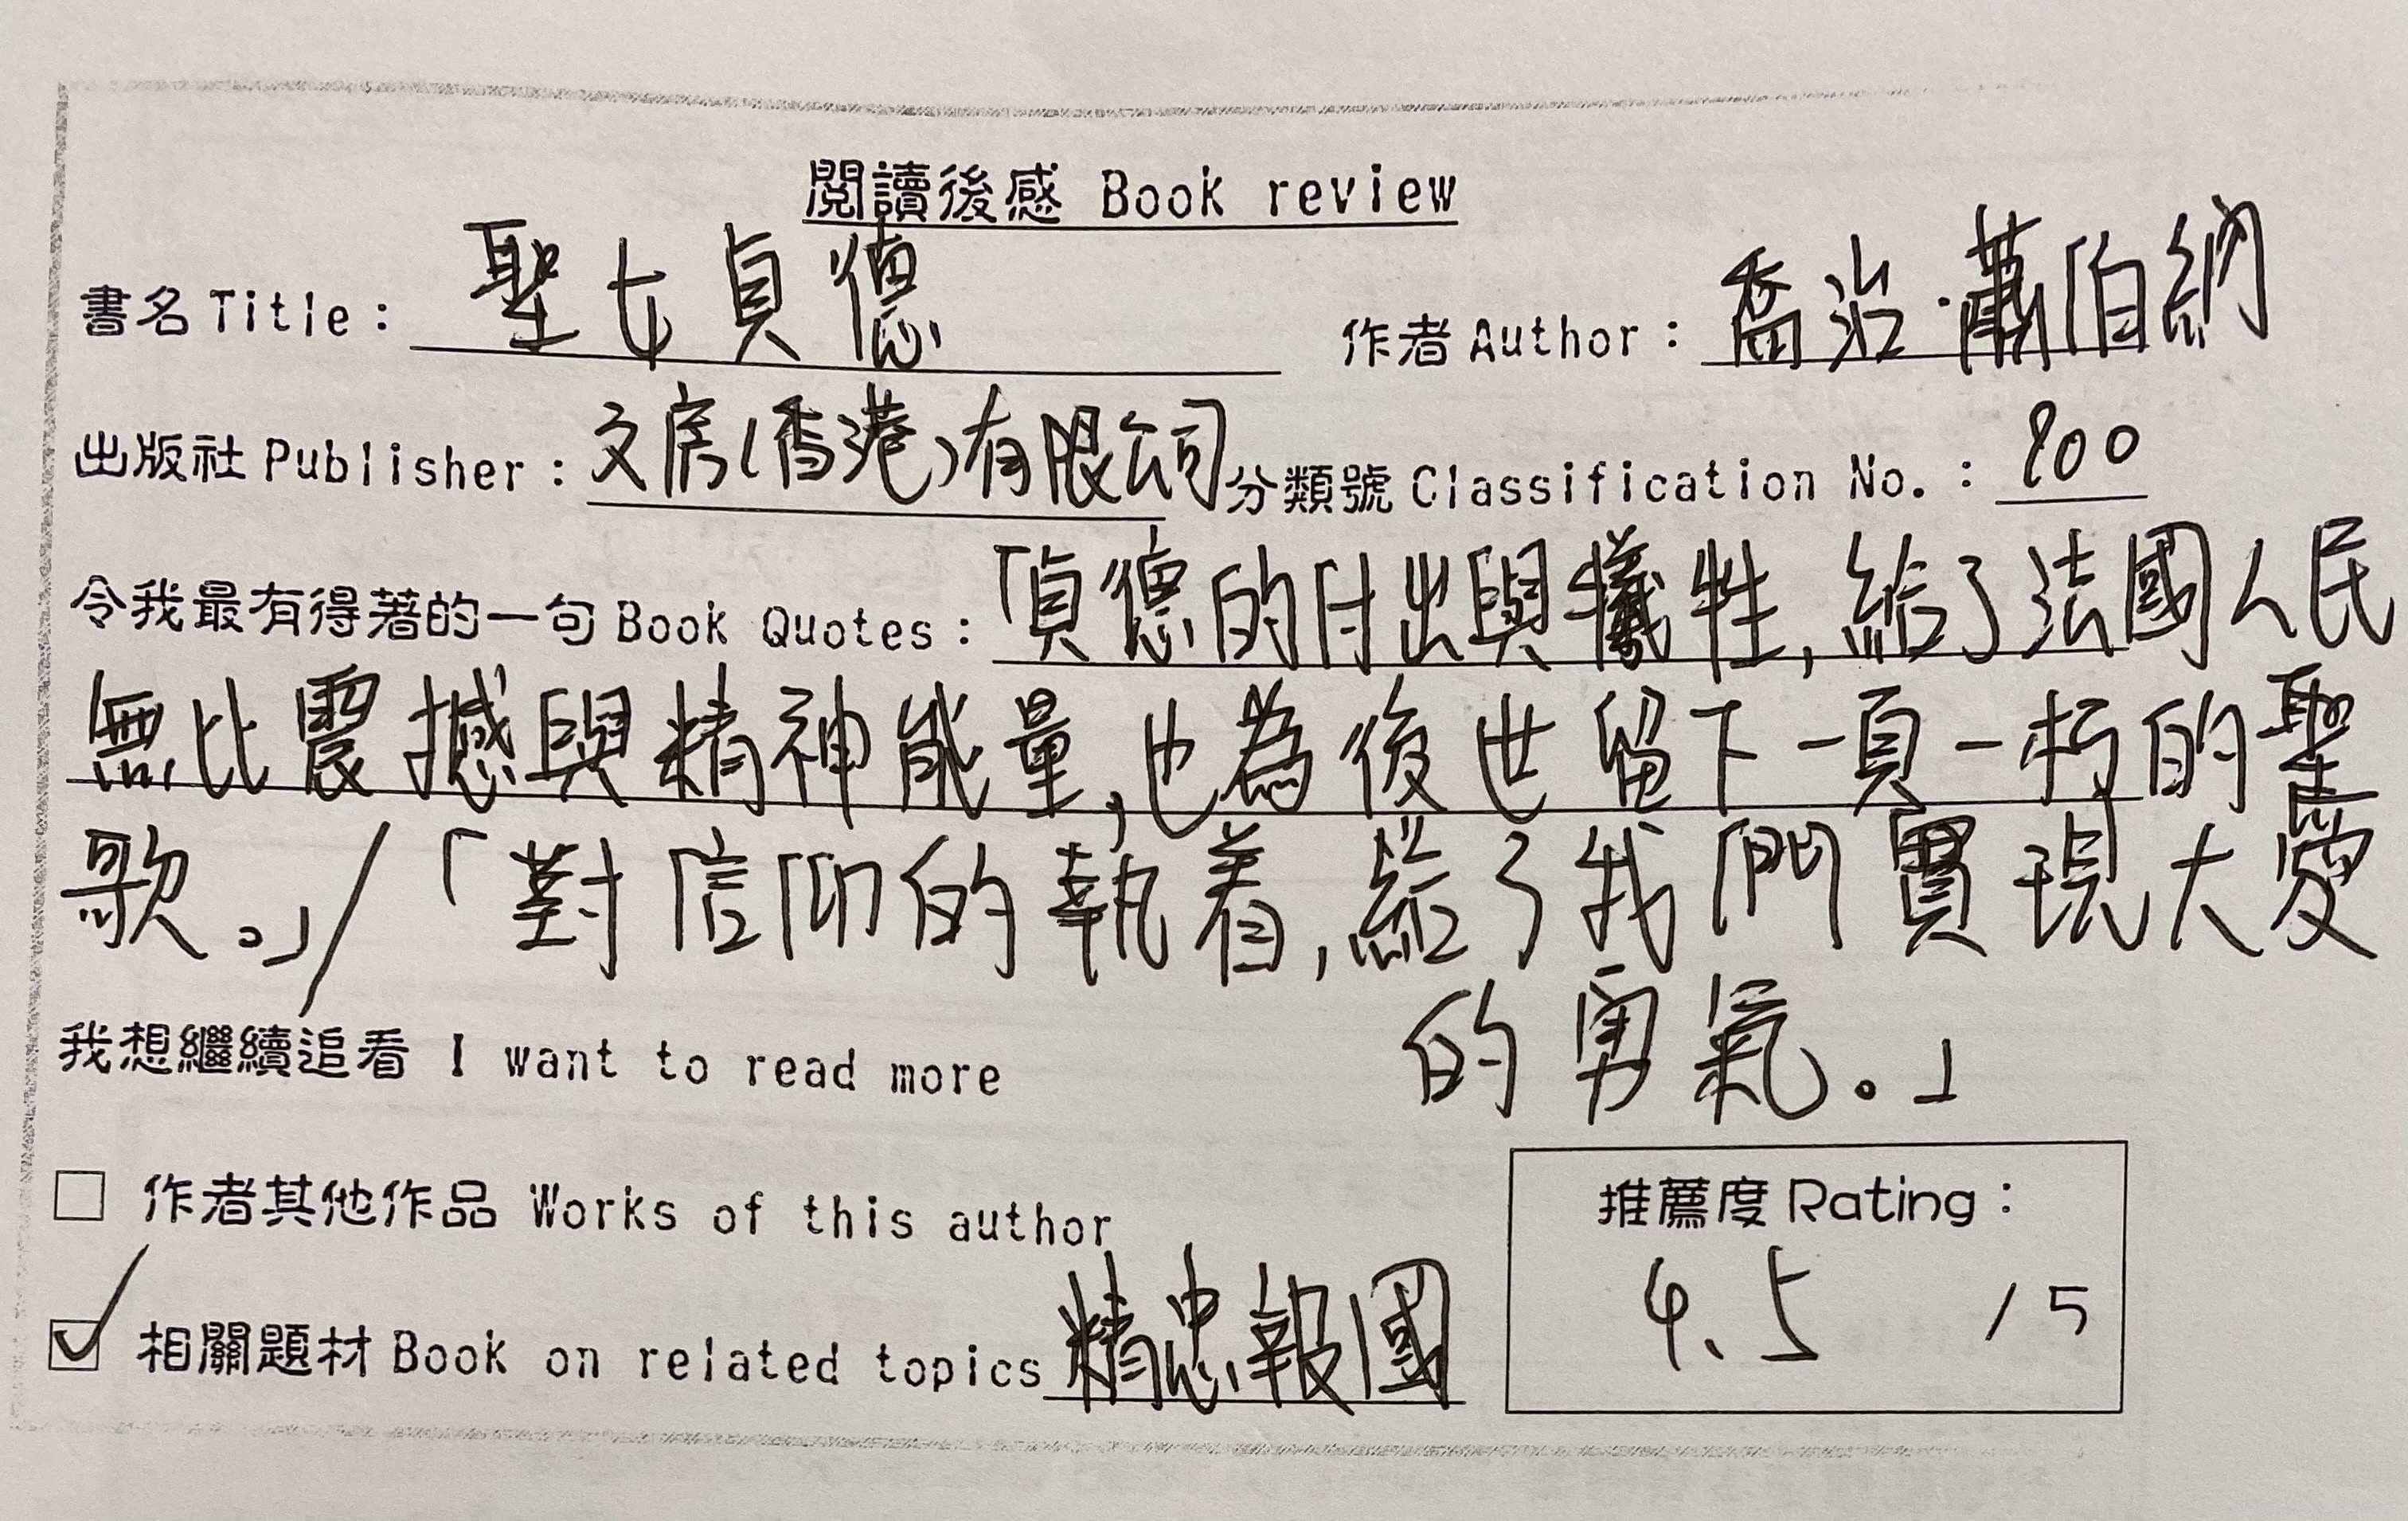 閱讀後感 Book review
書名 Title: 聖女貞德 作者 Author: 喬治·蕭伯納
出版社 Publisher: 文房(香港)有限公司 分類號 Classification No.: 800
令我最有得著的一句 Book Quotes: 「貞德的付出與犧牲,給了法國人民
無比震撼與精神能量,也為後世留下一頁一朽的聖
歌。」/「對信仰的執着,給了我們實現大愛
的勇氣。」
我想繼續追看 I want to read more
作者其他作品 Works of this author
推薦度 Rating:
4.5 /5
相關題材 Book on related topics 精忠報國